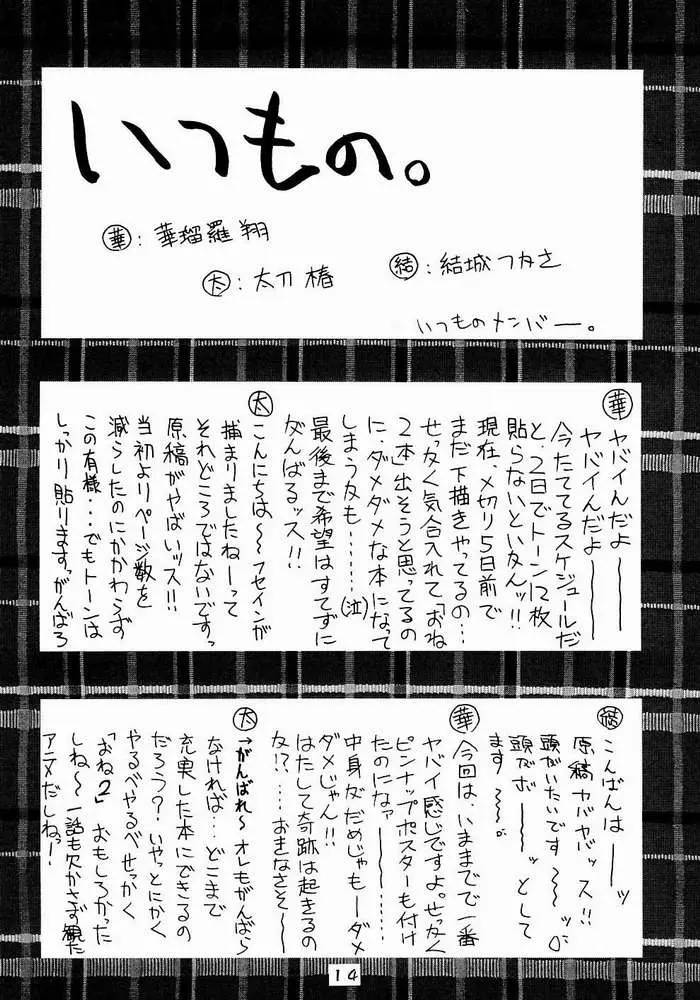 いつもの。
華：華瑠羅 翔
太：太刀 椿
結：結城つかさ
いつものメンバー。
華
ヤバイんだよ――――
ヤバイんだよ――――
今たててるスケジュールだ
と、2日でトーン12枚
貼らないといかんッ!!
現在、〆切り5日前で
まだ下描きやってるの…
せっかく気合入れて「おね
2本」出そうと思ってるの
に、ダメダメな本になって
しまうカモ……(泣)
最後まで希望はすてずに
がんばるッス!!
太
こんにちは〜〜フセインが
捕まりましたねーって
それどころではないですっ
原稿がやばいッス!!
当初よりページ数を
減らしたのにかかわらず
この有様...でもトーンは
しっかり貼りますっがんばろ
結
こんばんは――ッ
原稿ヤバヤバッス!!
頭がいたいです〜〜ッ
頭がボ――ッとして
ます〜〜。
華
今回は、いままでで一番
ヤバイ感じですよ。せっかく
ピンナップポスターも付け
たのになァ――――……
中身がだめじゃもーダメ
ダメじゃん!!
はたして奇跡は起きるの
か!?...おきなさそ〜〜
太
→がんばれ〜 オレもがんばら
なければ...どこまで
充実した本にできるの
だろう？いやっとにかく
やるべやるべせっかく
「おね2」おもしろかった
しね〜一話も欠かさず観た
アニメだしねっ！
14